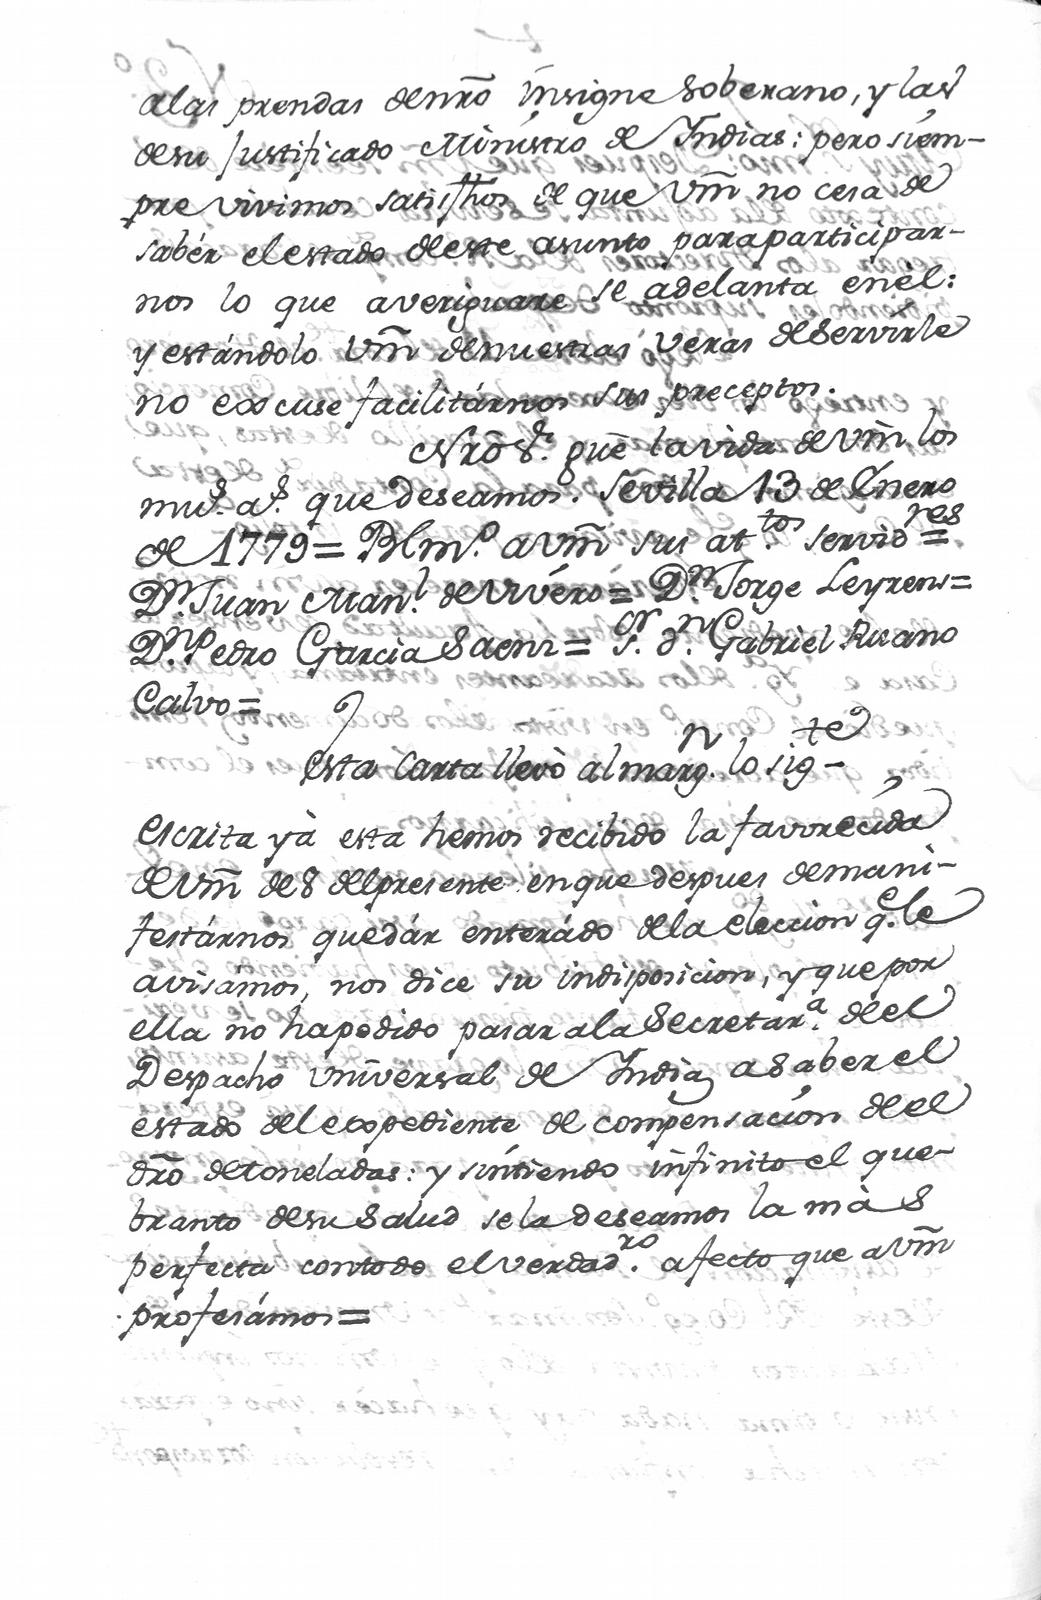 alas prendas denrō insigne Soberano, y las
desu Justificado Ministro de Indias: pero siem-
pre vivimos satisfhos de que Vm̄ no cesa de
sabér el estado de este asunto para participar-
nos lo que averiguare se adelanta en él:
y estándolo Vm̄ de nuestras veras de Servirle
no excuse facilitárnos sus preceptos.
Nrō S.r guē la vida de Vm̄ los
mu.s a.s que deseamos. Sevilla 13 de Enero
de 1779= Blm.o a Vm̄ sus at.tos servid.res=
D.n Juan Man.l de Vivéro= D.n Jorge Leyrens=
D.n Pedro Garcia Saenz= S.or d.n Gabriel Ruano
Calvo=
Esta Carta llevò al marg.n lo sig.te-
Escrita yà esta hemos recibido la favorecida
de Vm̄ de 8 del presente en que despues de mani-
festárnos quedár enterádo de la eleccion q.e le
avisámos, nos dice su indisposicion, y que por
ella no ha podido pasar a la Secretar.a de el
Despacho Univērsal de Indias a Saber el
estado del expediente de compensacion de el
drō de toneladas: y sintiendo infinito el que-
branto de su Salud se la deseamos la màs
perfecta con todo el verdad.ro afecto que a Vm̄
profesámos=